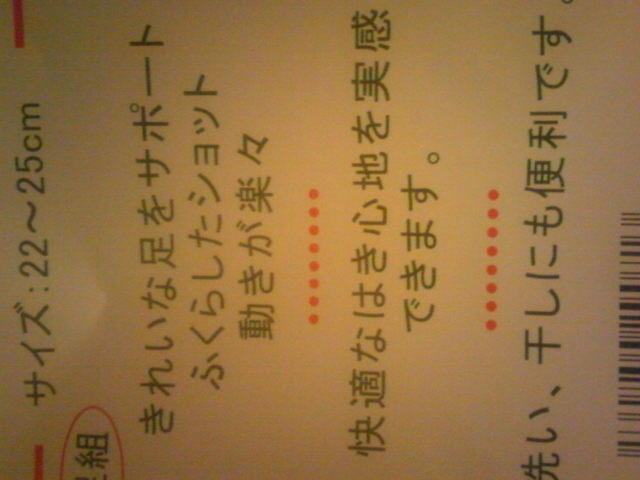 サイズ：22～25cm
組
きれいな足をサポート
ふくらしたショット
動きが楽々
快適なはき心地を実感
できます。
先い、干しにも便利です。